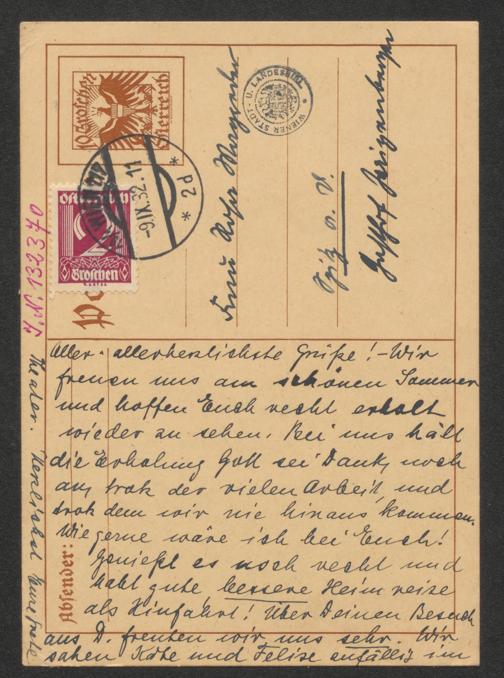 10 Groschen
Österreich
WIENER STADT- U. LANDESBIBL.
WIEN
-9.IX.32.11
* 2d *
Groschen
J. N. 132370
Frau Rosa
Spitz a. D.
Gasthof
Aller- allerherzlichste Grüße! - Wir
freuen uns am schönen Sommer
und hoffen Euch recht erholt
wieder zu sehen. Bei uns hält
die Erholung Gott sei Dank, noch
an, trotz der vielen Arbeit, und
trotz dem wir nie hinaus kommen.
Wie gerne wäre ich bei Euch!
Genießt es noch recht und
habt gute, bessere Heimreise
als Hinfahrt! Über Deinen Besuch
aus D. freuten wir uns sehr. Wir
sahen Käthe und Felix zufällig im
Theater. Herzlichst Eure
Absender: